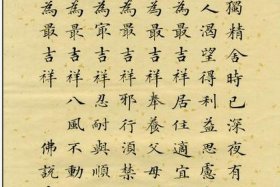 獨精舍時已深夜有
人渴望得利益思慮
為最吉祥 居住適宜
為最吉祥 奉養父母
為最吉祥 邪行須禁
為最吉祥 忍耐與順
為最吉祥 八風不動
為最吉祥 佛說